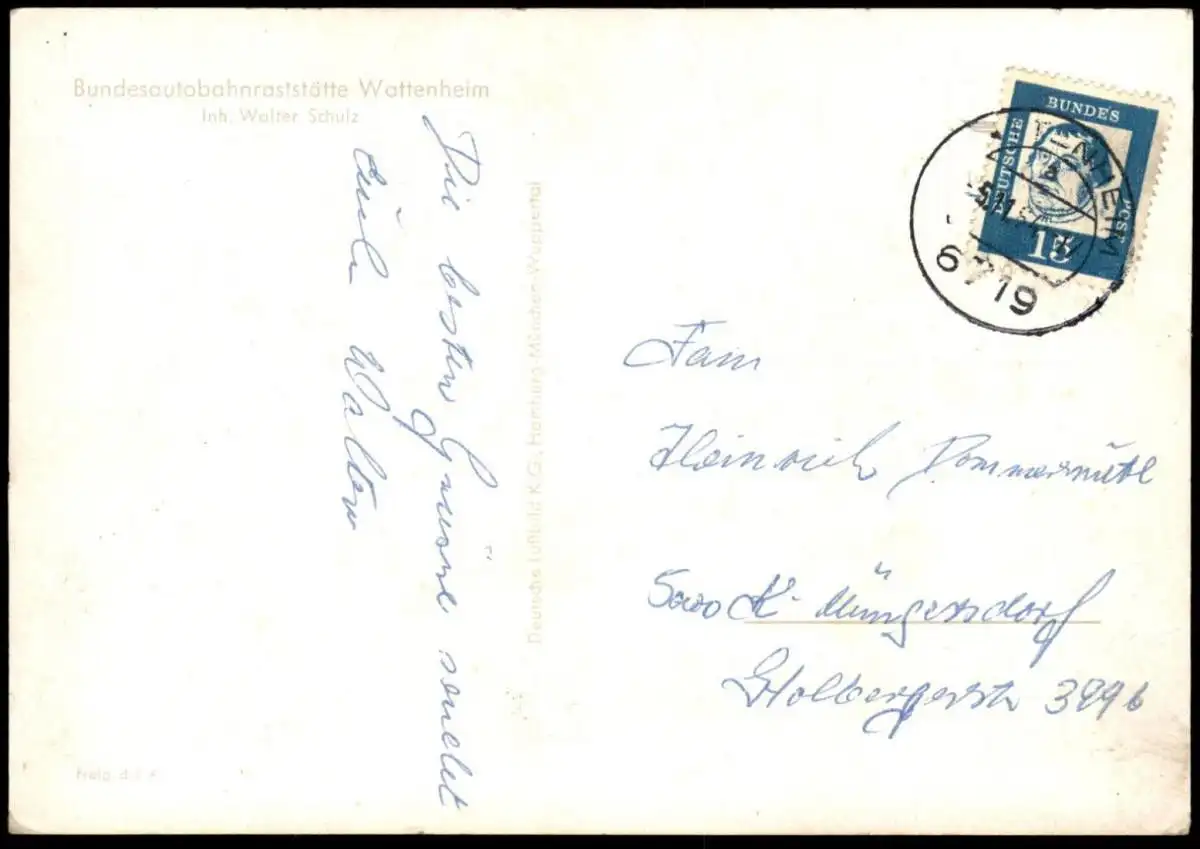 Bundesautobahnraststätte Wattenheim
Inh. Walter Schulz
Die besten Grüße sendet
Euch Walter
Deutsche Luftbild K.G., Hamburg-München-Wuppertal
DEUTSCHE BUNDES POST
15
TENHEIM
a
6719
Fam
Heinrich
5000 K- Müngersdorf
Stolbergerstr 399b